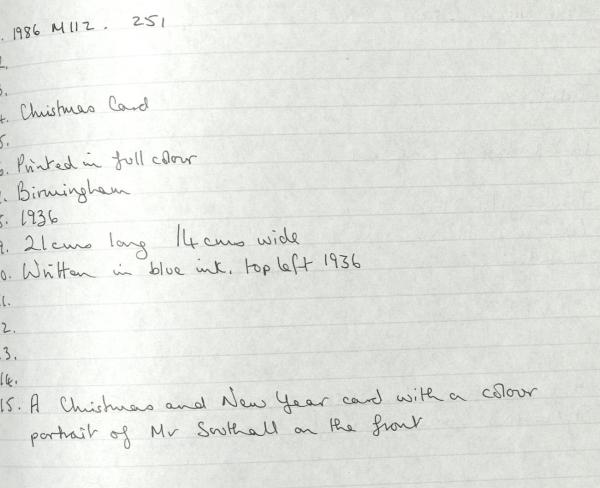 . 1986 M112. 251
2.
3.
4. Christmas Card
5.
6. Printed in full colour
7. Birmingham
8. 1936
9. 21cms long 14cms wide
0. Written in blue ink. top left 1936
1.
2.
3.
14.
15. A Christmas and New Year card with a colour
portrait of Mr Southall on the front